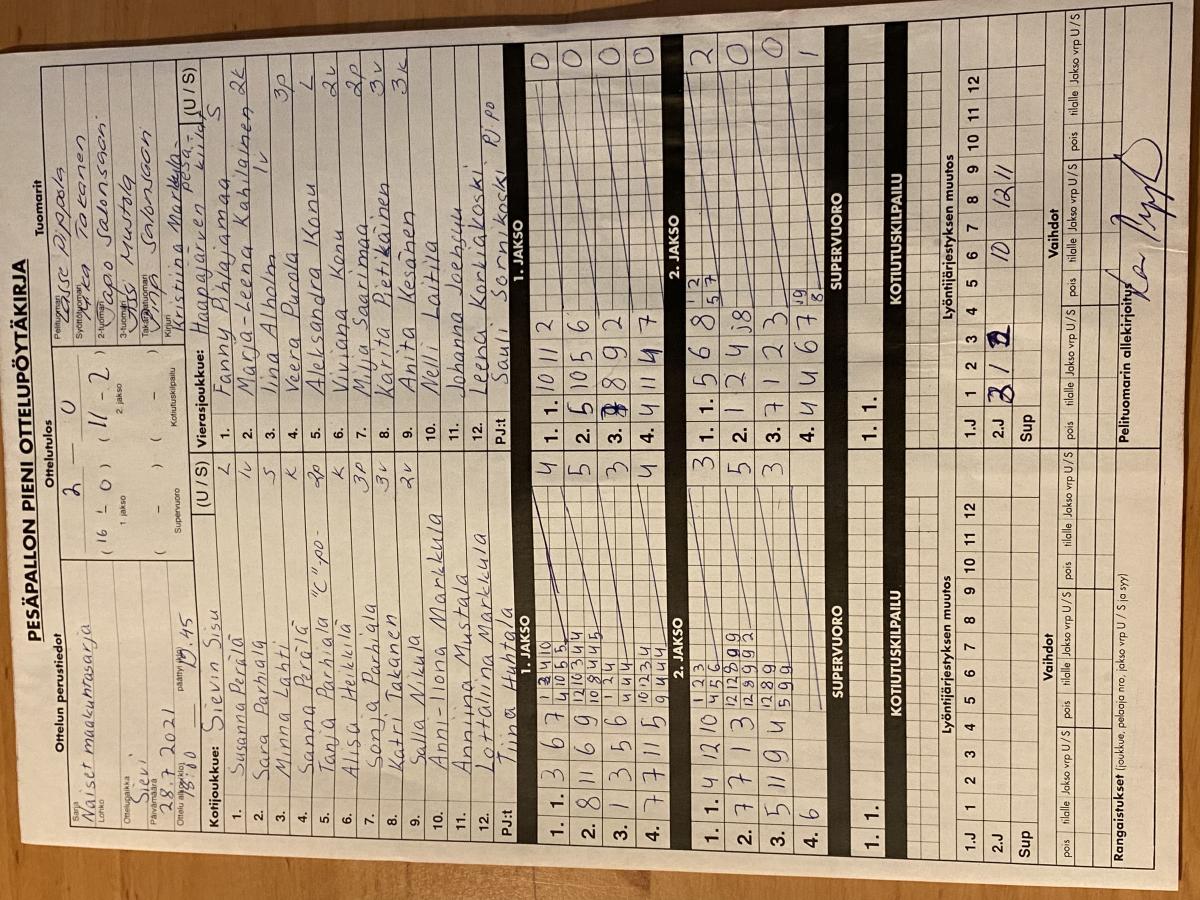 PESÄPALLON PIENI OTTELUPÖYTÄKIRJA
Ottelun perustiedot
Sarja
Naiset maakuntasarja
Lohko
Ottelupaikka
Sievi
Päivämäärä
28.7 2021
Ottelu alkoi (klo)
18:00
päättyi (klo)
19.45
Ottelutulos
2 – 0
( 16 – 0 ) ( 11 – 2 )
1. jakso 2. jakso
( – ) ( – )
Supervuoro Kotiutuskilpailu
Tuomarit
Pelituomari
Lasse Pippola
Syöttötuomari
Takanen
2-tuomari
Tapo Salonsaari
3-tuomari
Mustola
Takarajatuomari
Salonsaari
Kirjuri
Kristiina Markkula
Kotijoukkue: Sievin Sisu (U / S)
1. Susanna Perälä L
2. Sara Parhiala 1v
3. Minna Lahti S
4. Sanna Perälä K
5. Tanja Parhiala "C"-po- 2p
6. Alisa Heikkilä K
7. Sonja Parhiala 3p
8. Katri Takanen 3v
9. Salla Nikula 2v
10. Anni-Ilona Markkula
11. Anniina Mustala
12. Lottaliina Markkula
PJ:t Tiina Huhtala
Vierasjoukkue: Haapajärven pesä-kiilat (U / S)
1. Fanny Pihlajamaa S
2. Marja-Leena Kahilainen 2k
3. Iina Alholm 1v
4. Veera Purola 3p
5. Aleksandra Konu L
6. Viviana Konu 2v
7. Milja Saarimaa 2p
8. Karita Pietikäinen 3v
9. Anita Kesänen 3k
10. Neli Laitila
11. Johanna Joensuu
12. Leena Korkiakoski
PJ:t Sauli Sornikoski Pj.po
1. JAKSO
1. 1. 3 6 7 4 10 5 5 4
2. 8 11 6 9 12 10 3 4 4 5
3. 1 3 5 6 1 2 4 3
4. 7 7 11 5 10 12 3 4 4
1. JAKSO
1. 1. 10 11 2 0
2. 5 10 5 6 0
3. 8 8 9 2 0
4. 4 11 4 7 0
2. JAKSO
1. 1. 4 12 10 1 2 3 3
2. 7 7 1 3 12 12 8 9 9 5
3. 5 11 9 4 12 8 9 3
4. 6
2. JAKSO
1. 1. 5 6 8 1 2 2
2. 1 2 4 j8 0
3. 7 1 2 3 0
4. 4 4 6 7 1
SUPERVUORO
1. 1.
SUPERVUORO
1. 1.
KOTIUTUSKILPAILU
KOTIUTUSKILPAILU
Lyöntijärjestyksen muutos
1.J 1 2 3 4 5 6 7 8 9 10 11 12
2.J
Sup
Lyöntijärjestyksen muutos
1.J 1 2 3 4 5 6 7 8 9 10 11 12
2.J 3 1 2 10 12 11
Sup
Vaihdot
pois tilalle Jakso vrp U / S pois tilalle Jakso vrp U / S pois tilalle Jakso vrp U / S
Vaihdot
pois tilalle Jakso vrp U / S pois tilalle Jakso vrp U / S pois tilalle Jakso vrp U / S
Rangaistukset (joukkue, pelaaja nro, jakso vrp U / S ja syy)
Pelituomarin allekirjoitus